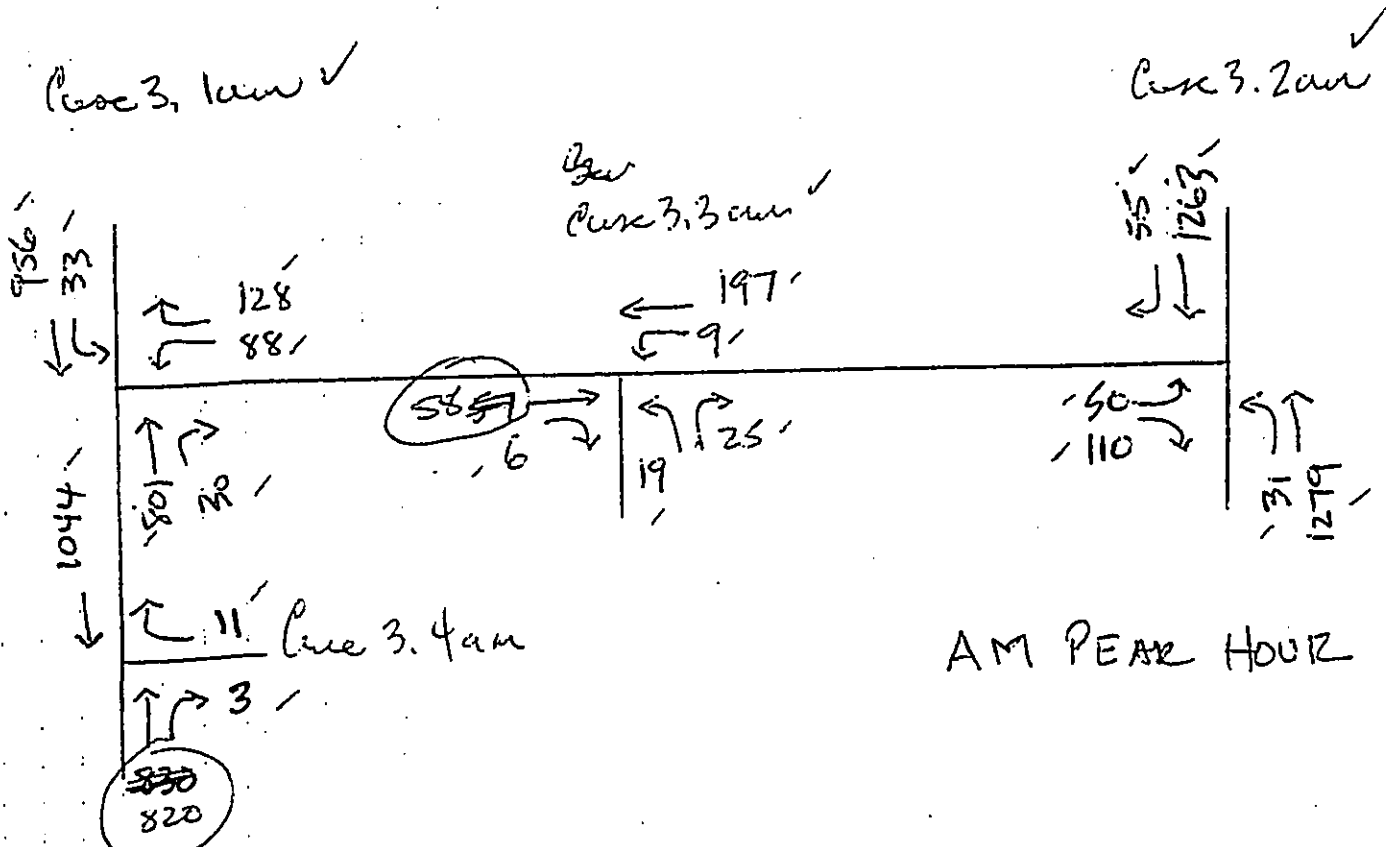 Case 3.1am ✓
Case 3.2am ✓
Case 3.3am ✓
956
33
128
88
197
9
55
1263
58 57
6
19
25
50
110
31
1279
1044
801
30
11
Case 3.4am
3
830
820
AM PEAK HOUR